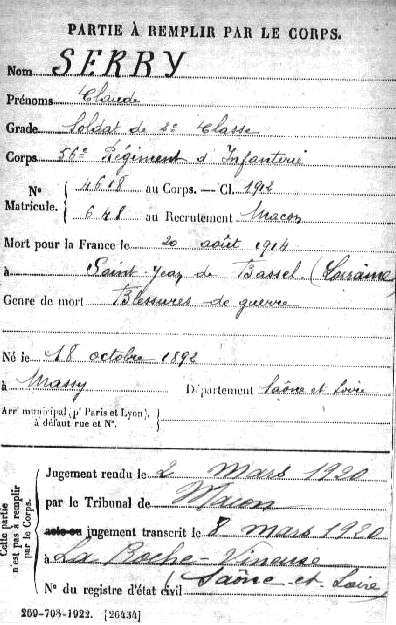 PARTIE À REMPLIR PAR LE CORPS.
Nom SERRY
Prénoms Claude
Grade Soldat de 2e Classe
Corps 56e Régiment d'Infanterie
No Matricule. { 4618 au Corps. — Cl. 1912
648 au Recrutement Macon
Mort pour la France le 20 août 1914
à Saint-Jean de Bassel (Lorraine)
Genre de mort Blessures de guerre
Né le 18 octobre 1892
à Massy Département Saône et Loire
Arrt municipal (pr Paris et Lyon),
à défaut rue et No.
Cette partie n'est pas à remplir par le Corps.
Jugement rendu le 2 mars 1920
par le Tribunal de Macon
acte ou jugement transcrit le 8 mars 1920
à La Roche-Vineuse
(Saône-et-Loire)
No du registre d'état civil
269-708-1922. [26434]